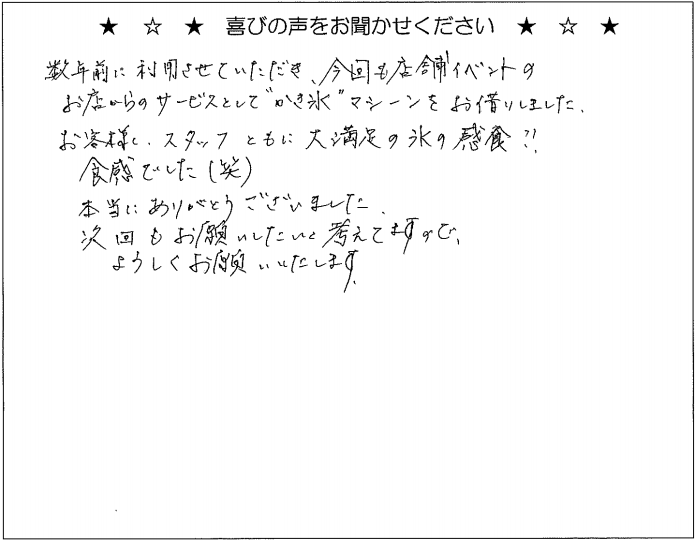 ★ ☆ ★ 喜びの声をお聞かせください ★ ☆ ★
数年前に利用させていただき、今回も店舗イベントの
お店からのサービスとして"かき氷"マシーンをお借りしました。
お客様も、スタッフともに大満足の氷の感食!!
食感でした(笑)
本当にありがとうございました。
次回もお願いしたいと考えてますので、
よろしくお願いいたします。